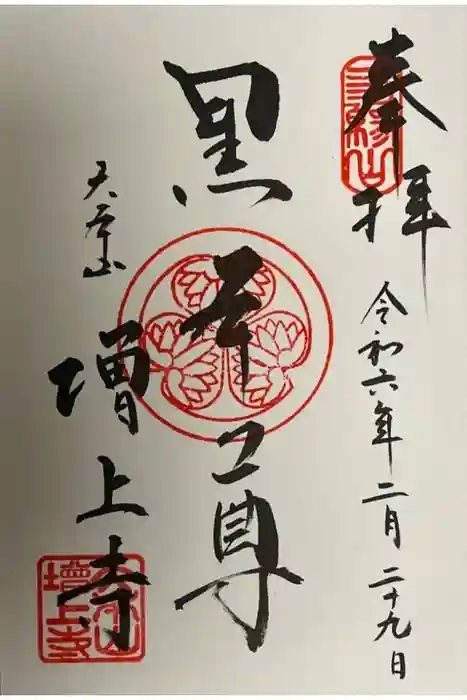 奉拝
三緣山
令和六年二月二十九日
黒本尊
大本山
増上寺
增上寺